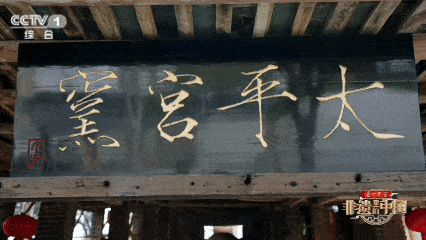 CCTV 1
综合
太平宫窑
非遗里的中国